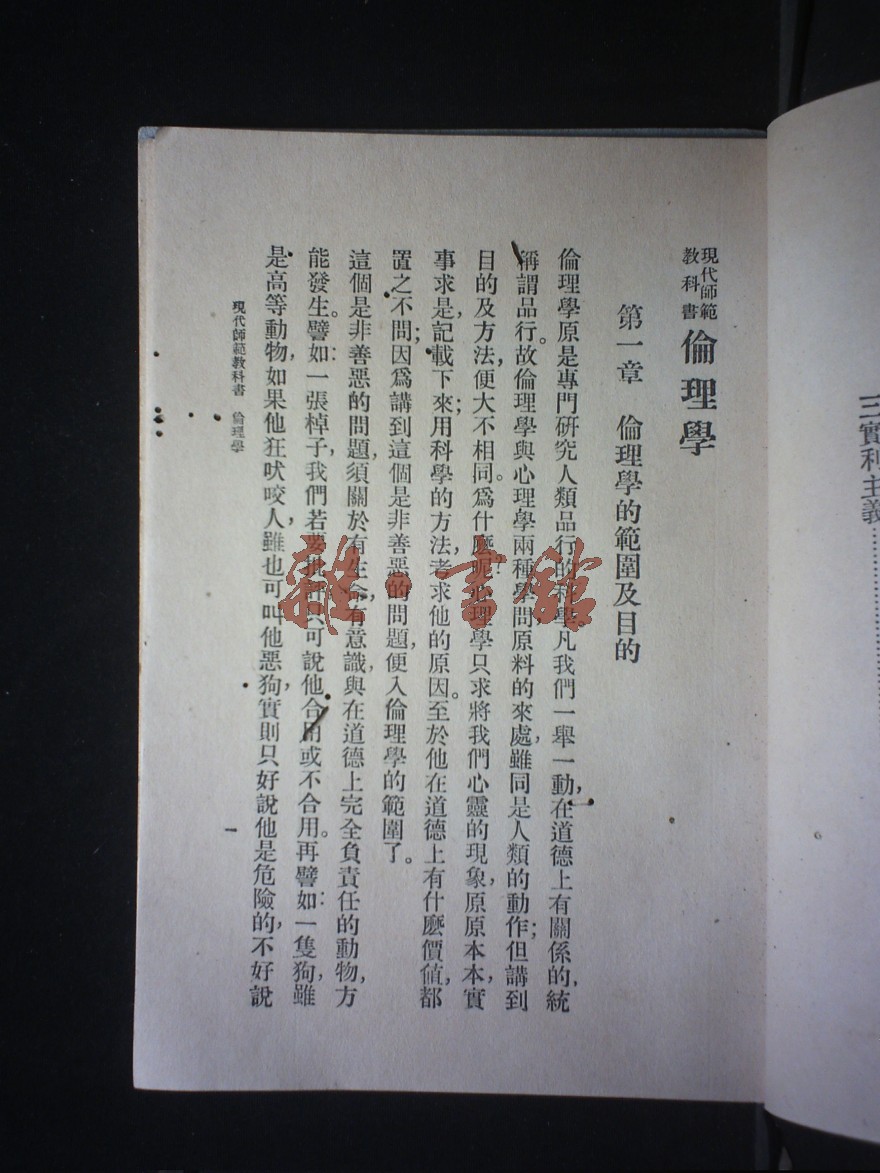 現代師範
教科書
倫理學
第一章　倫理學的範圍及目的
倫理學原是專門研究人類品行的科學。凡我們一舉一動，在道德上有關係的，統
稱謂品行。故倫理學與心理學兩種學問，原料的來處，雖同是人類的動作；但講到
目的及方法，便大不相同。爲什麽呢？心理學只求將我們心靈的現象，原原本本，實
事求是，記載下來；用科學的方法，考求他的原因。至於他在道德上有什麽價值，都
置之不問；因爲講到這個是非善惡的問題，便入倫理學的範圍了。
這個是非善惡的問題，須關於有生命，有意識，與在道德上完全負責任的動物，方
能發生。譬如：一張棹子，我們若要批評，只可說他合用或不合用。再譬如：一隻狗，雖
是高等動物，如果他狂吠咬人，雖也可叫他惡狗，實則只好說他是危險的，不好說
現代師範教科書　倫理學
一
三實利主義……………
雜·書館